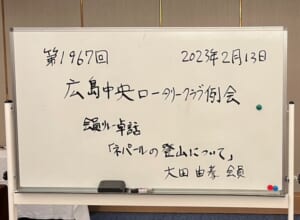 第1967回 2023年2月13日
広島中央ロータリークラブ例会
会員リレー卓話
「ネパールの登山について」
大田 由孝 会員